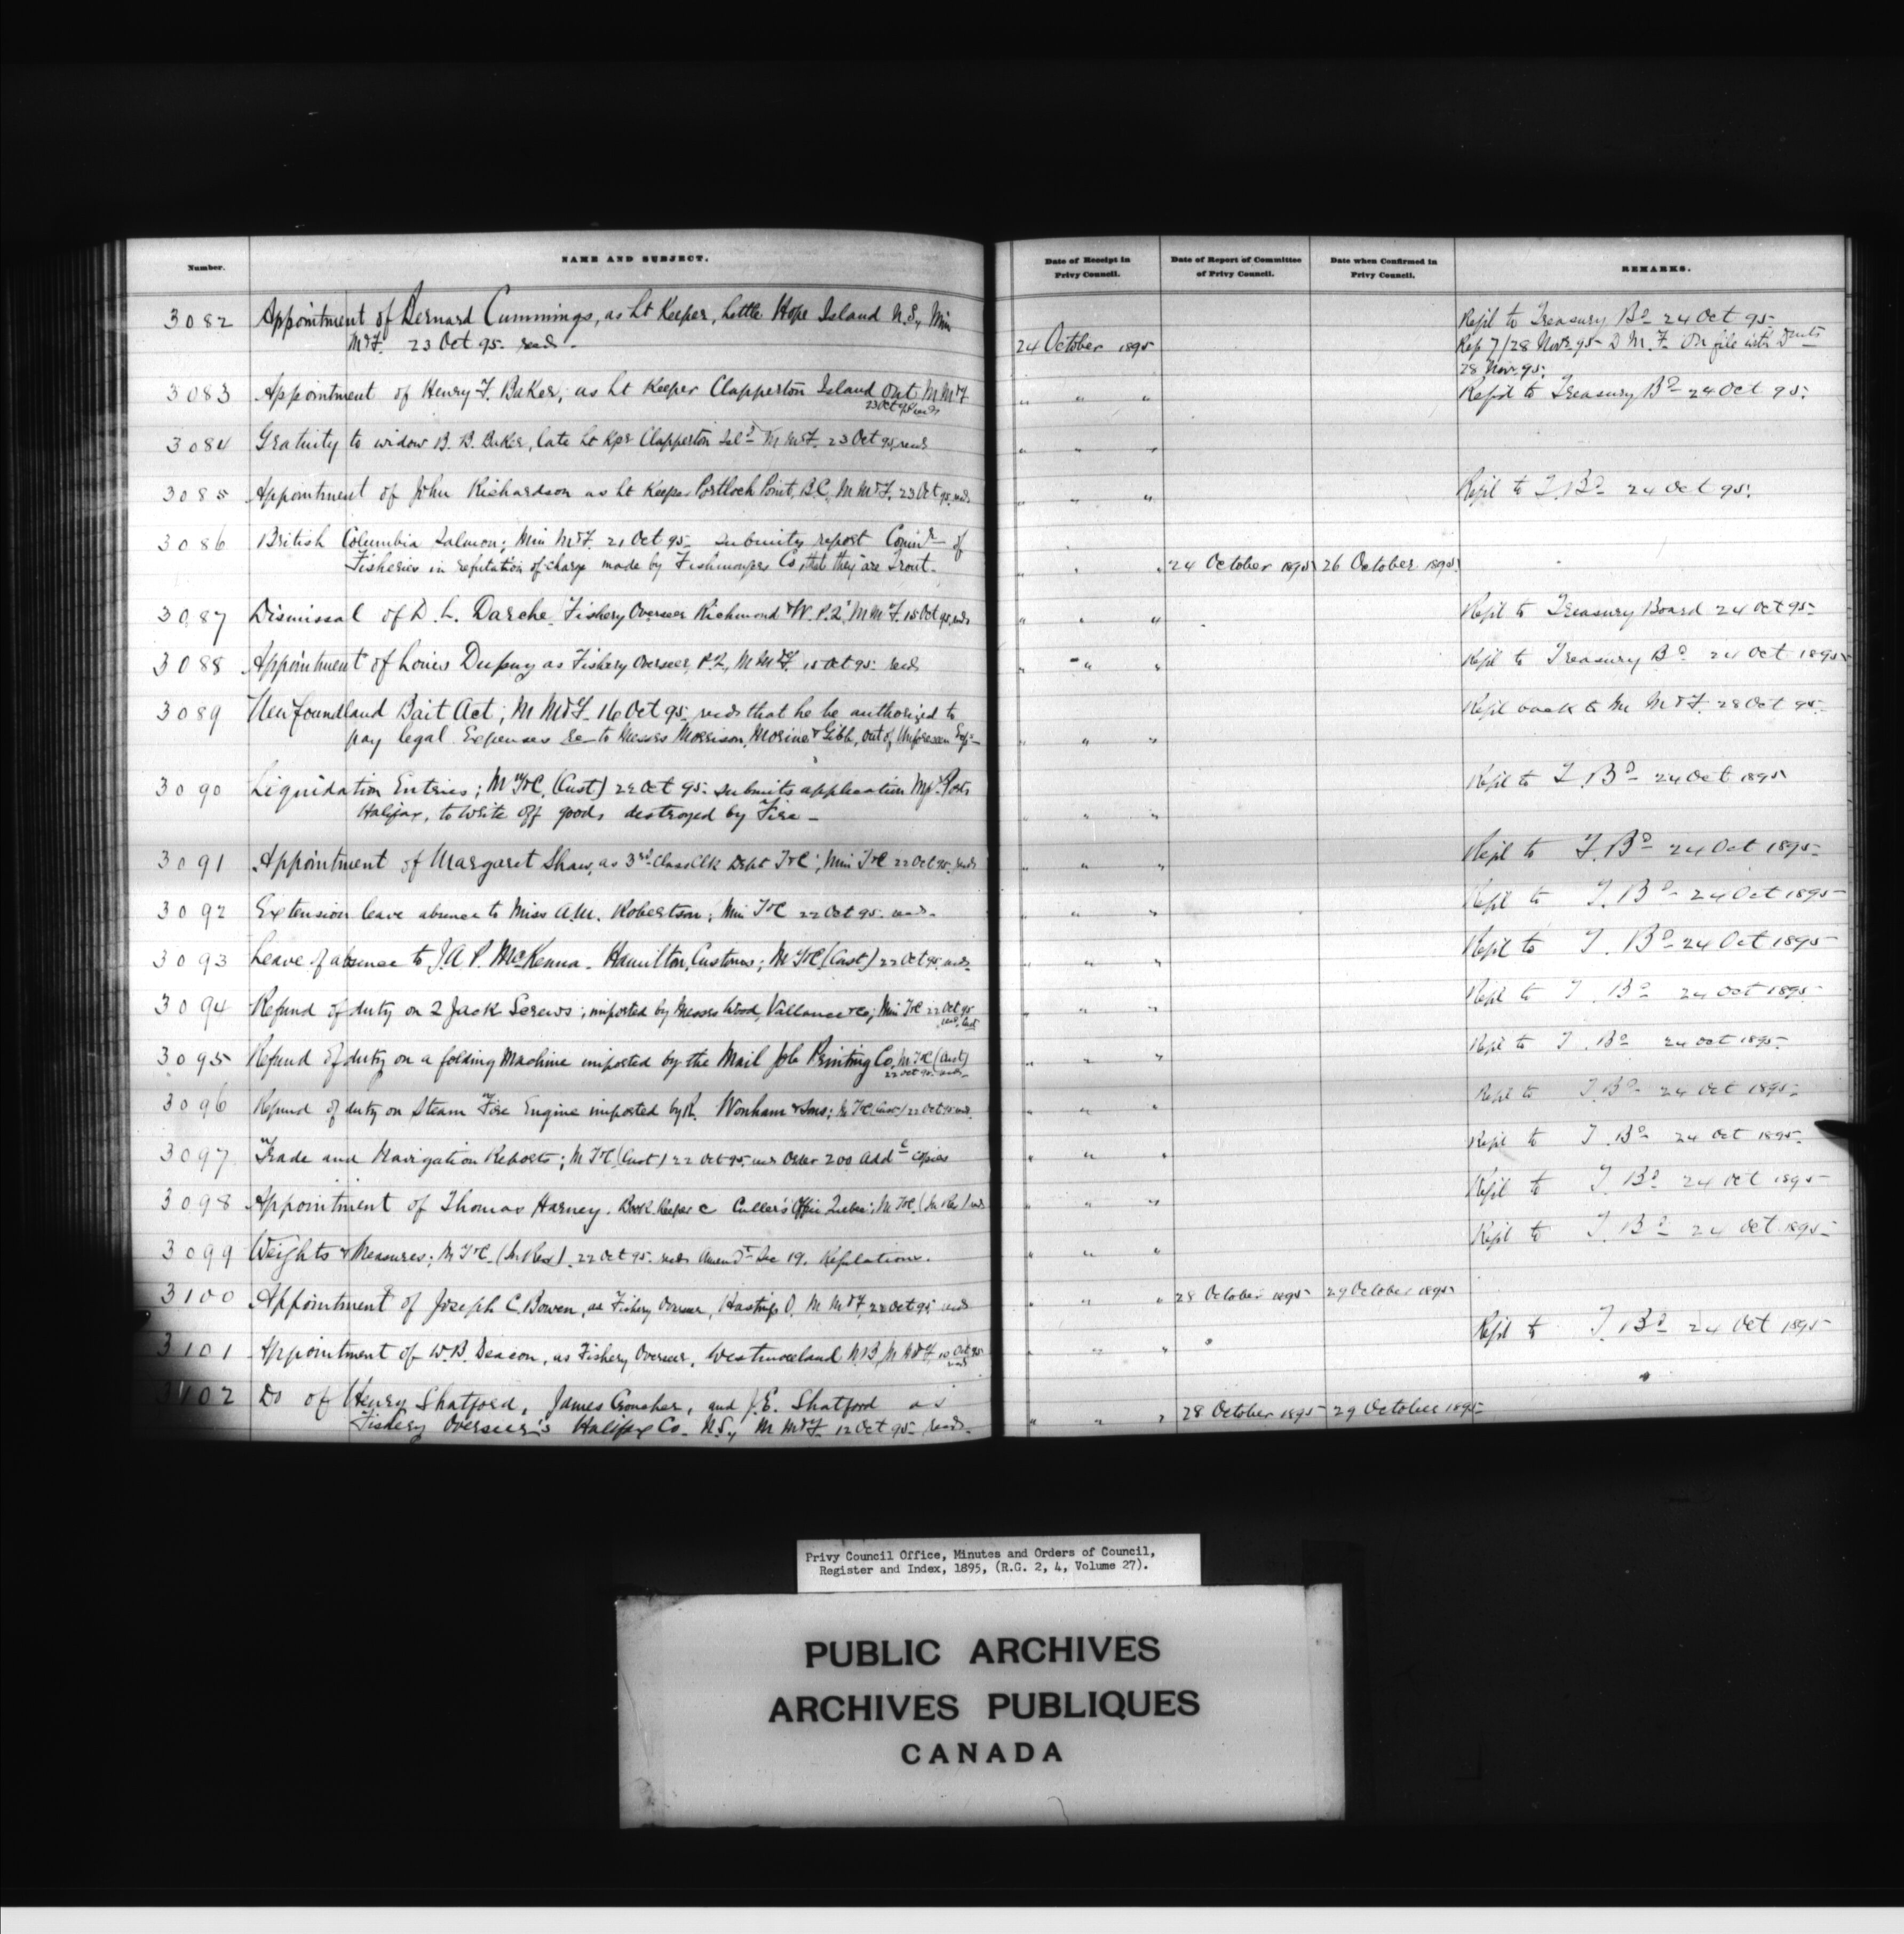 Number.
NAME AND SUBJECT.
Date of Receipt in Privy Council.
Date of Report of Committee of Privy Council.
Date when Confirmed in Privy Council.
REMARKS.
3082 Appointment of Bernard Cummings, as Lt Keeper, Little Hope Island N.S., Min Refd to Treasury Bd 24 Oct 95
M&F. 23 Oct 95. recds. 24 October 1895 Rep 7/28 Novr 95 D.M.F. On file with
28 Nov 95.
3083 Appointment of Henry F. Baker, as Lt Keeper Clapperton Island Ont. M M&F " " " Refd to Treasury Bd 24 Oct 95.
23 Oct 95 recds
3084 Gratuity to widow B. B. Baker, late Lt Kpr Clapperton Isld M M&F. 23 Oct 95, recds " " "
3085 Appointment of John Richardson as Lt Keeper Portlock Point, B.C, M M&F. 23 Oct 95, recds " " " Refd to T. Bd 24 Oct 95.
3086 British Columbia Salmon; Min M&F. 21 Oct 95. submits report Comr of
Fisheries in refutation of charge made by Fishmongers Co, that they are Trout. " " " 24 October 1895 26 October 1895
3087 Dismissal of D. L. Darche Fishery Overseer Richmond & W. P.Q. M M&F. 15 Oct 95, recds " " " Refd to Treasury Board 24 Oct 95
3088 Appointment of Louis Dupuy as Fishery Overseer, P.Q, M M&F. 15 Oct 95. recds " " " Refd to Treasury Bd 24 Oct 1895
3089 Newfoundland Bait Act; M M&F. 16 Oct 95. recds that he be authorized to Refd back to M M&F. 28 Oct 95.
pay legal Expenses &c to Messrs Morrison, Morine & Gibb, out of Unforeseen Exps " " "
3090 Liquidation Entries; M T&C. (Cust) 22 Oct 95. submits application Refd to T. Bd 24 Oct 1895
Halifax, to write off goods destroyed by Fire. " " "
3091 Appointment of Margaret Shaw, as 3rd Class Clk Dept T&C; Min T&C 22 Oct 95. recds " " " Refd to T. Bd 24 Oct 1895
3092 Extension leave absence to Miss A.M. Robertson; Min T&C 22 Oct 95. recds. " " " Refd to T. Bd 24 Oct 1895
3093 Leave of absence to J.A P. McKenna. Hamilton, Customs; M T&C (Cust) 22 Oct 95. recds " " " Refd to T. Bd 24 Oct 1895
3094 Refund of duty on 2 Jack Screws; imported by Messrs Wood, Vallance & Co; Min T&C 22 Oct 95 " " " Refd to T. Bd 24 Oct 1895
recds, Cust
3095 Refund of duty on a folding Machine imported by the Mail Job Printing Co, M T&C (Cust) " " " Refd to T. Bd 24 Oct 1895
22 Oct 95. recds
3096 Refund of duty on Steam Fire Engine imported by R. Wonham & Sons; M T&C (Cust) 22 Oct 95 recds. " " " Refd to T. Bd 24 Oct 1895
3097 Trade and Navigation Reports; M T&C (Cust) 22 Oct 95. recds Order 200 Addl copies " " " Refd to T. Bd 24 Oct 1895
3098 Appointment of Thomas Harney. Book Keeper Culler's Office Quebec; M T&C. (In Rev) recds " " " Refd to T. Bd 24 Oct 1895
3099 Weights & Measures; M T&C. (In Rev). 22 Oct 95. recds Amendt Sec 19. Regulations. " " " Refd to T. Bd 24 Oct 1895
3100 Appointment of Joseph C. Bowen, as Fishery Overseer, Hastings O, M M&F, 22 Oct 95 recds " " " 28 October 1895 29 October 1895
3101 Appointment of W.B. Deacon, as Fishery Overseer, Westmoreland N.B, M M&F, 10 Oct 95 " " " Refd to T. Bd 24 Oct 1895
recds
3102 Do of Henry Shatford, James Cronaher, and J.E. Shatford as
Fishery Overseer's Halifax Co. N.S, M M&F. 12 Oct 95 recds. " " " 28 October 1895 29 October 1895
Privy Council Office, Minutes and Orders of Council,
Register and Index, 1895, (R.G. 2, 4, Volume 27).
PUBLIC ARCHIVES
ARCHIVES PUBLIQUES
CANADA